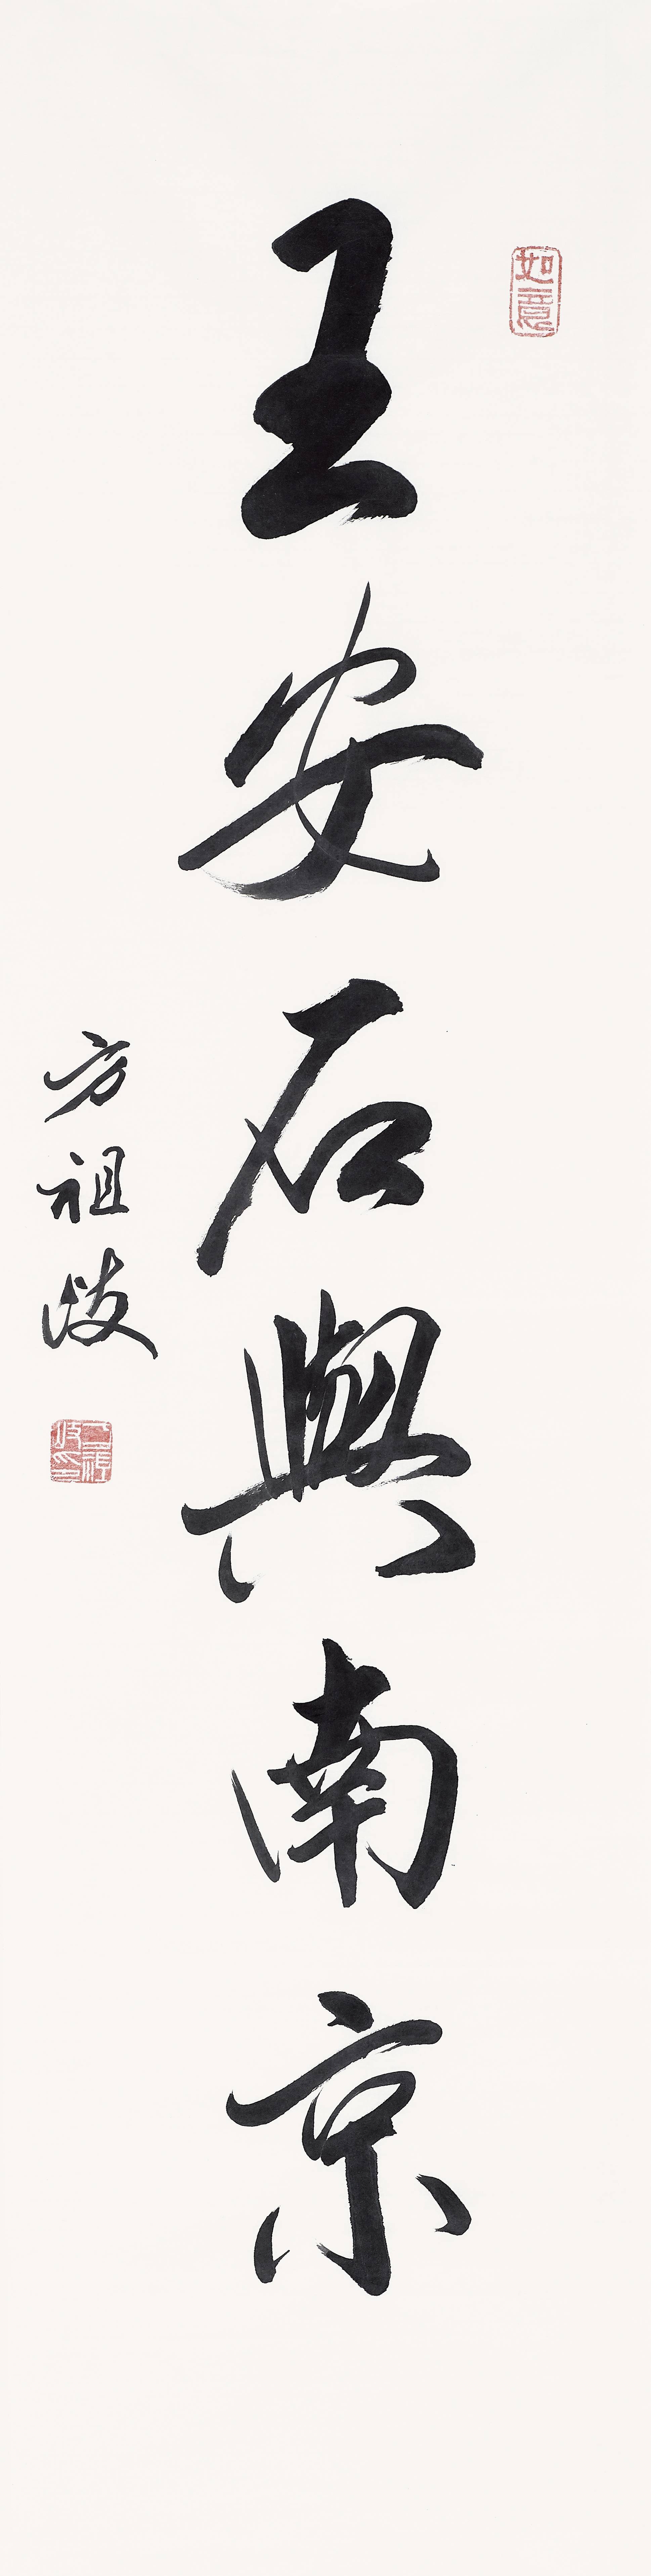 如意
王安石與南京
方祖岐